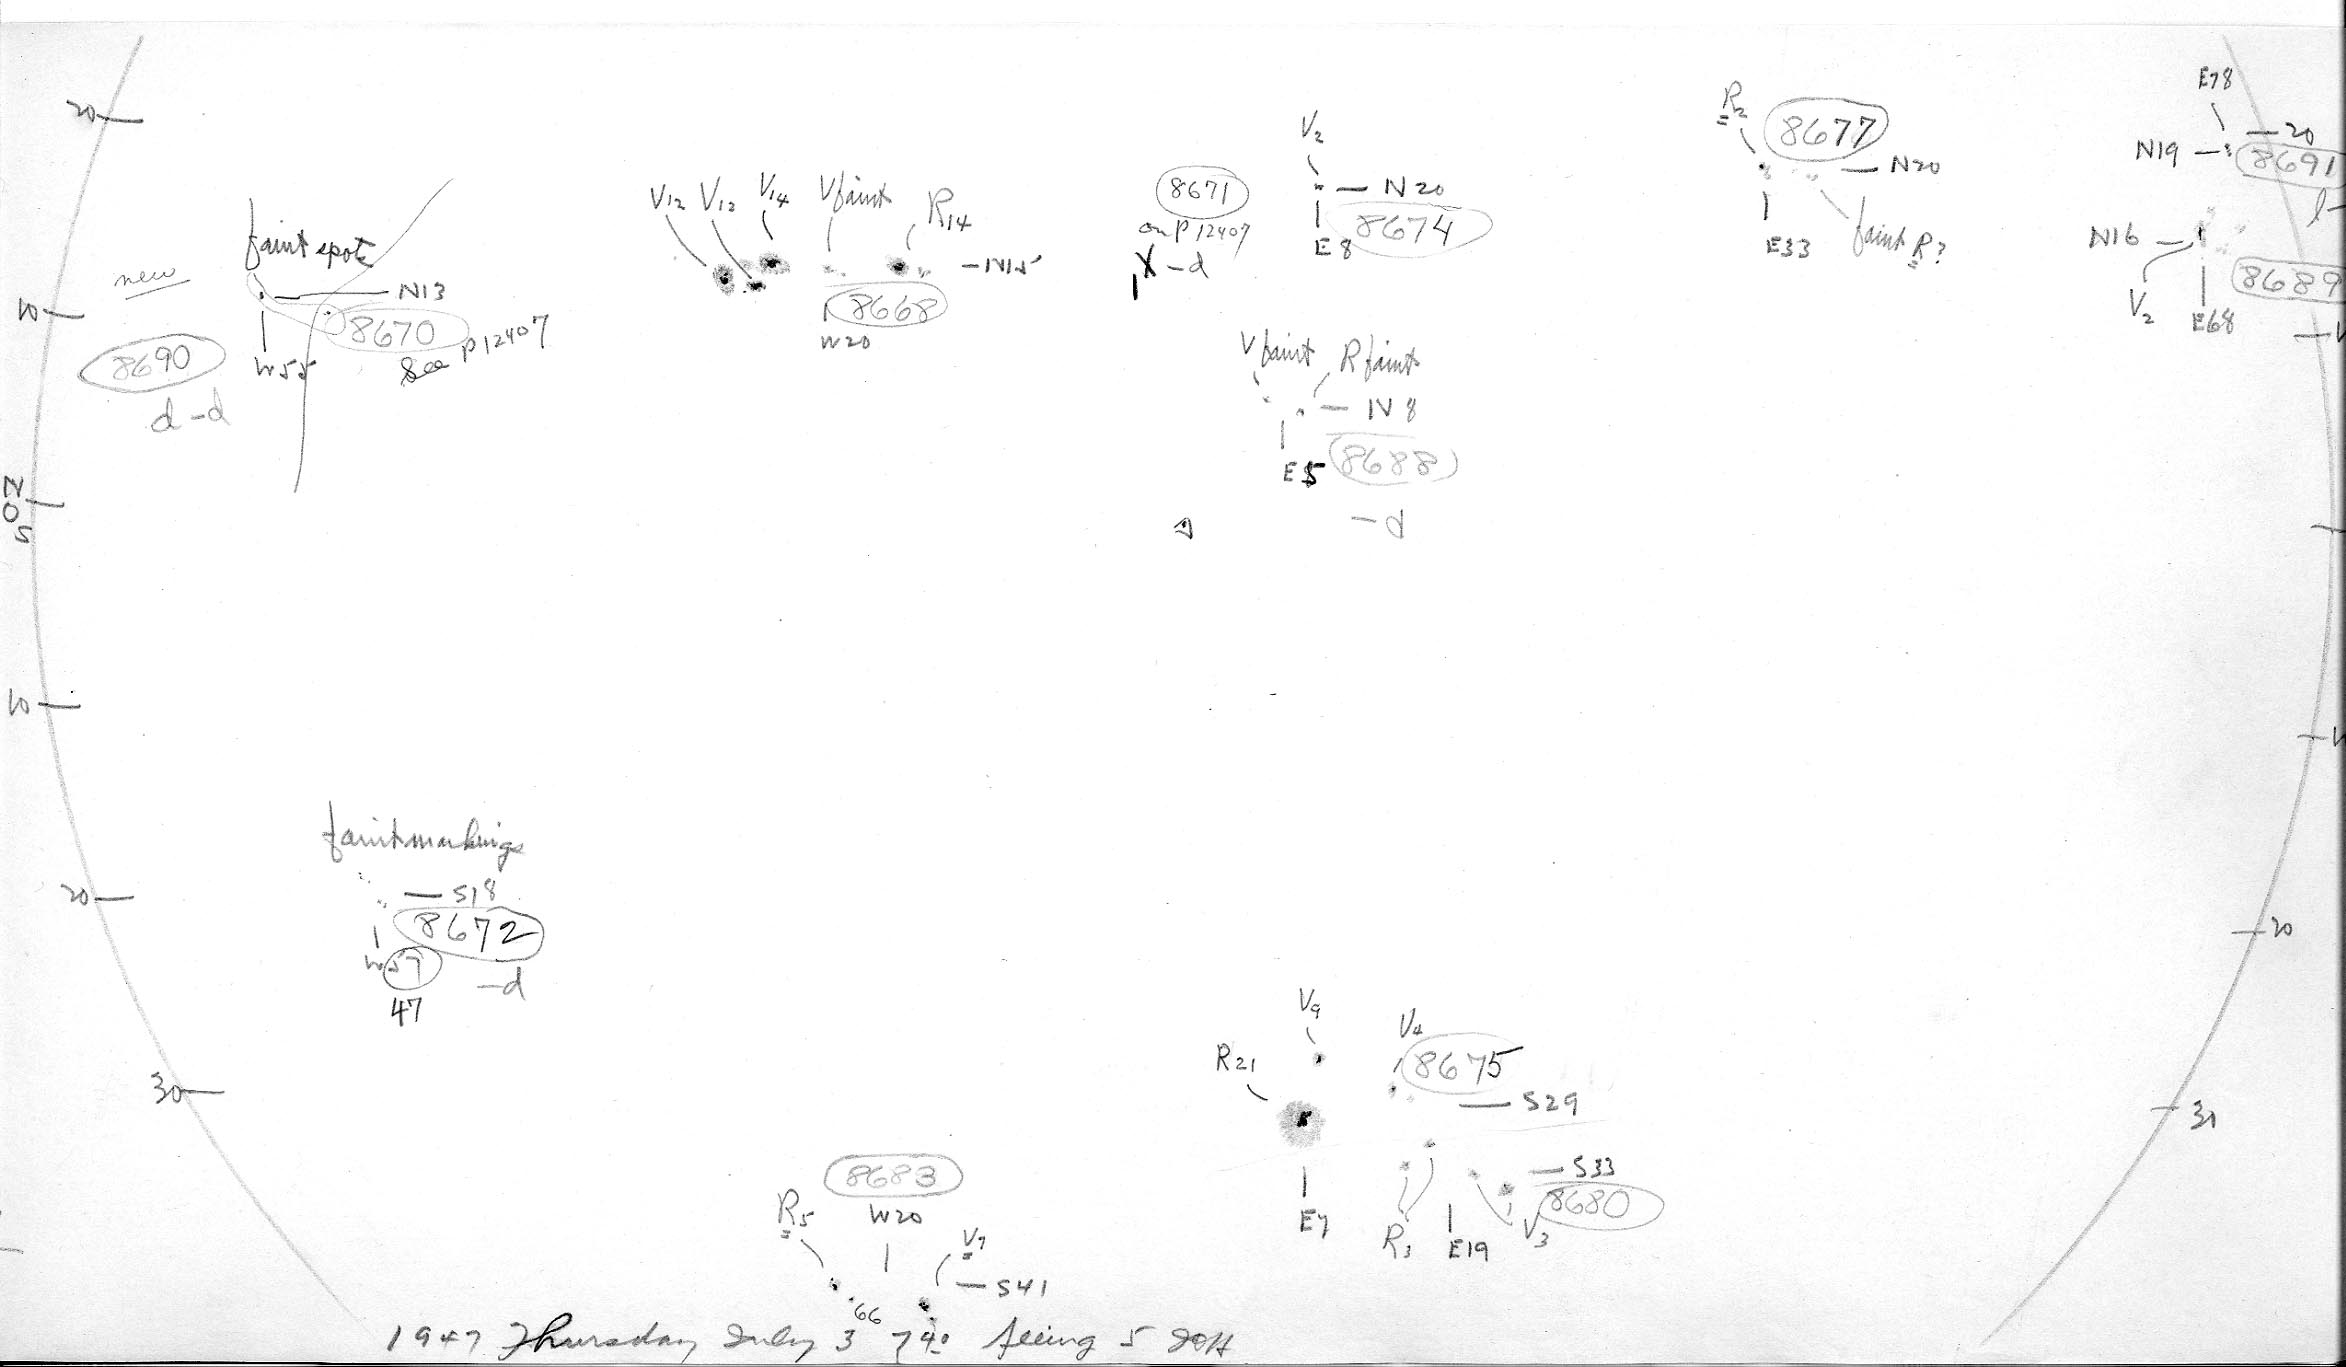 20
10
N
O
S
10
20
30
new
faint spot
N13
W55
8690
d-d
8670
See P12407
V12 V12 V14 V faint R14
-N15
8668
W20
8671
on P12407
X-d
V2
N20
E8
8674
V faint R faint
N8
E5
8688
-d
R2
8677
N20
E33
faint R?
E78
20
N19
8691
N16
8689
V2
E68
faint markings
S18
8672
W57
47
-d
8683
R5
W20
V7
S41
V9
V4
R21
8675
S29
S33
8680
E7
R3
E19
V3
20
30
66
1947 Thursday July 3 7 40 Seeing 5